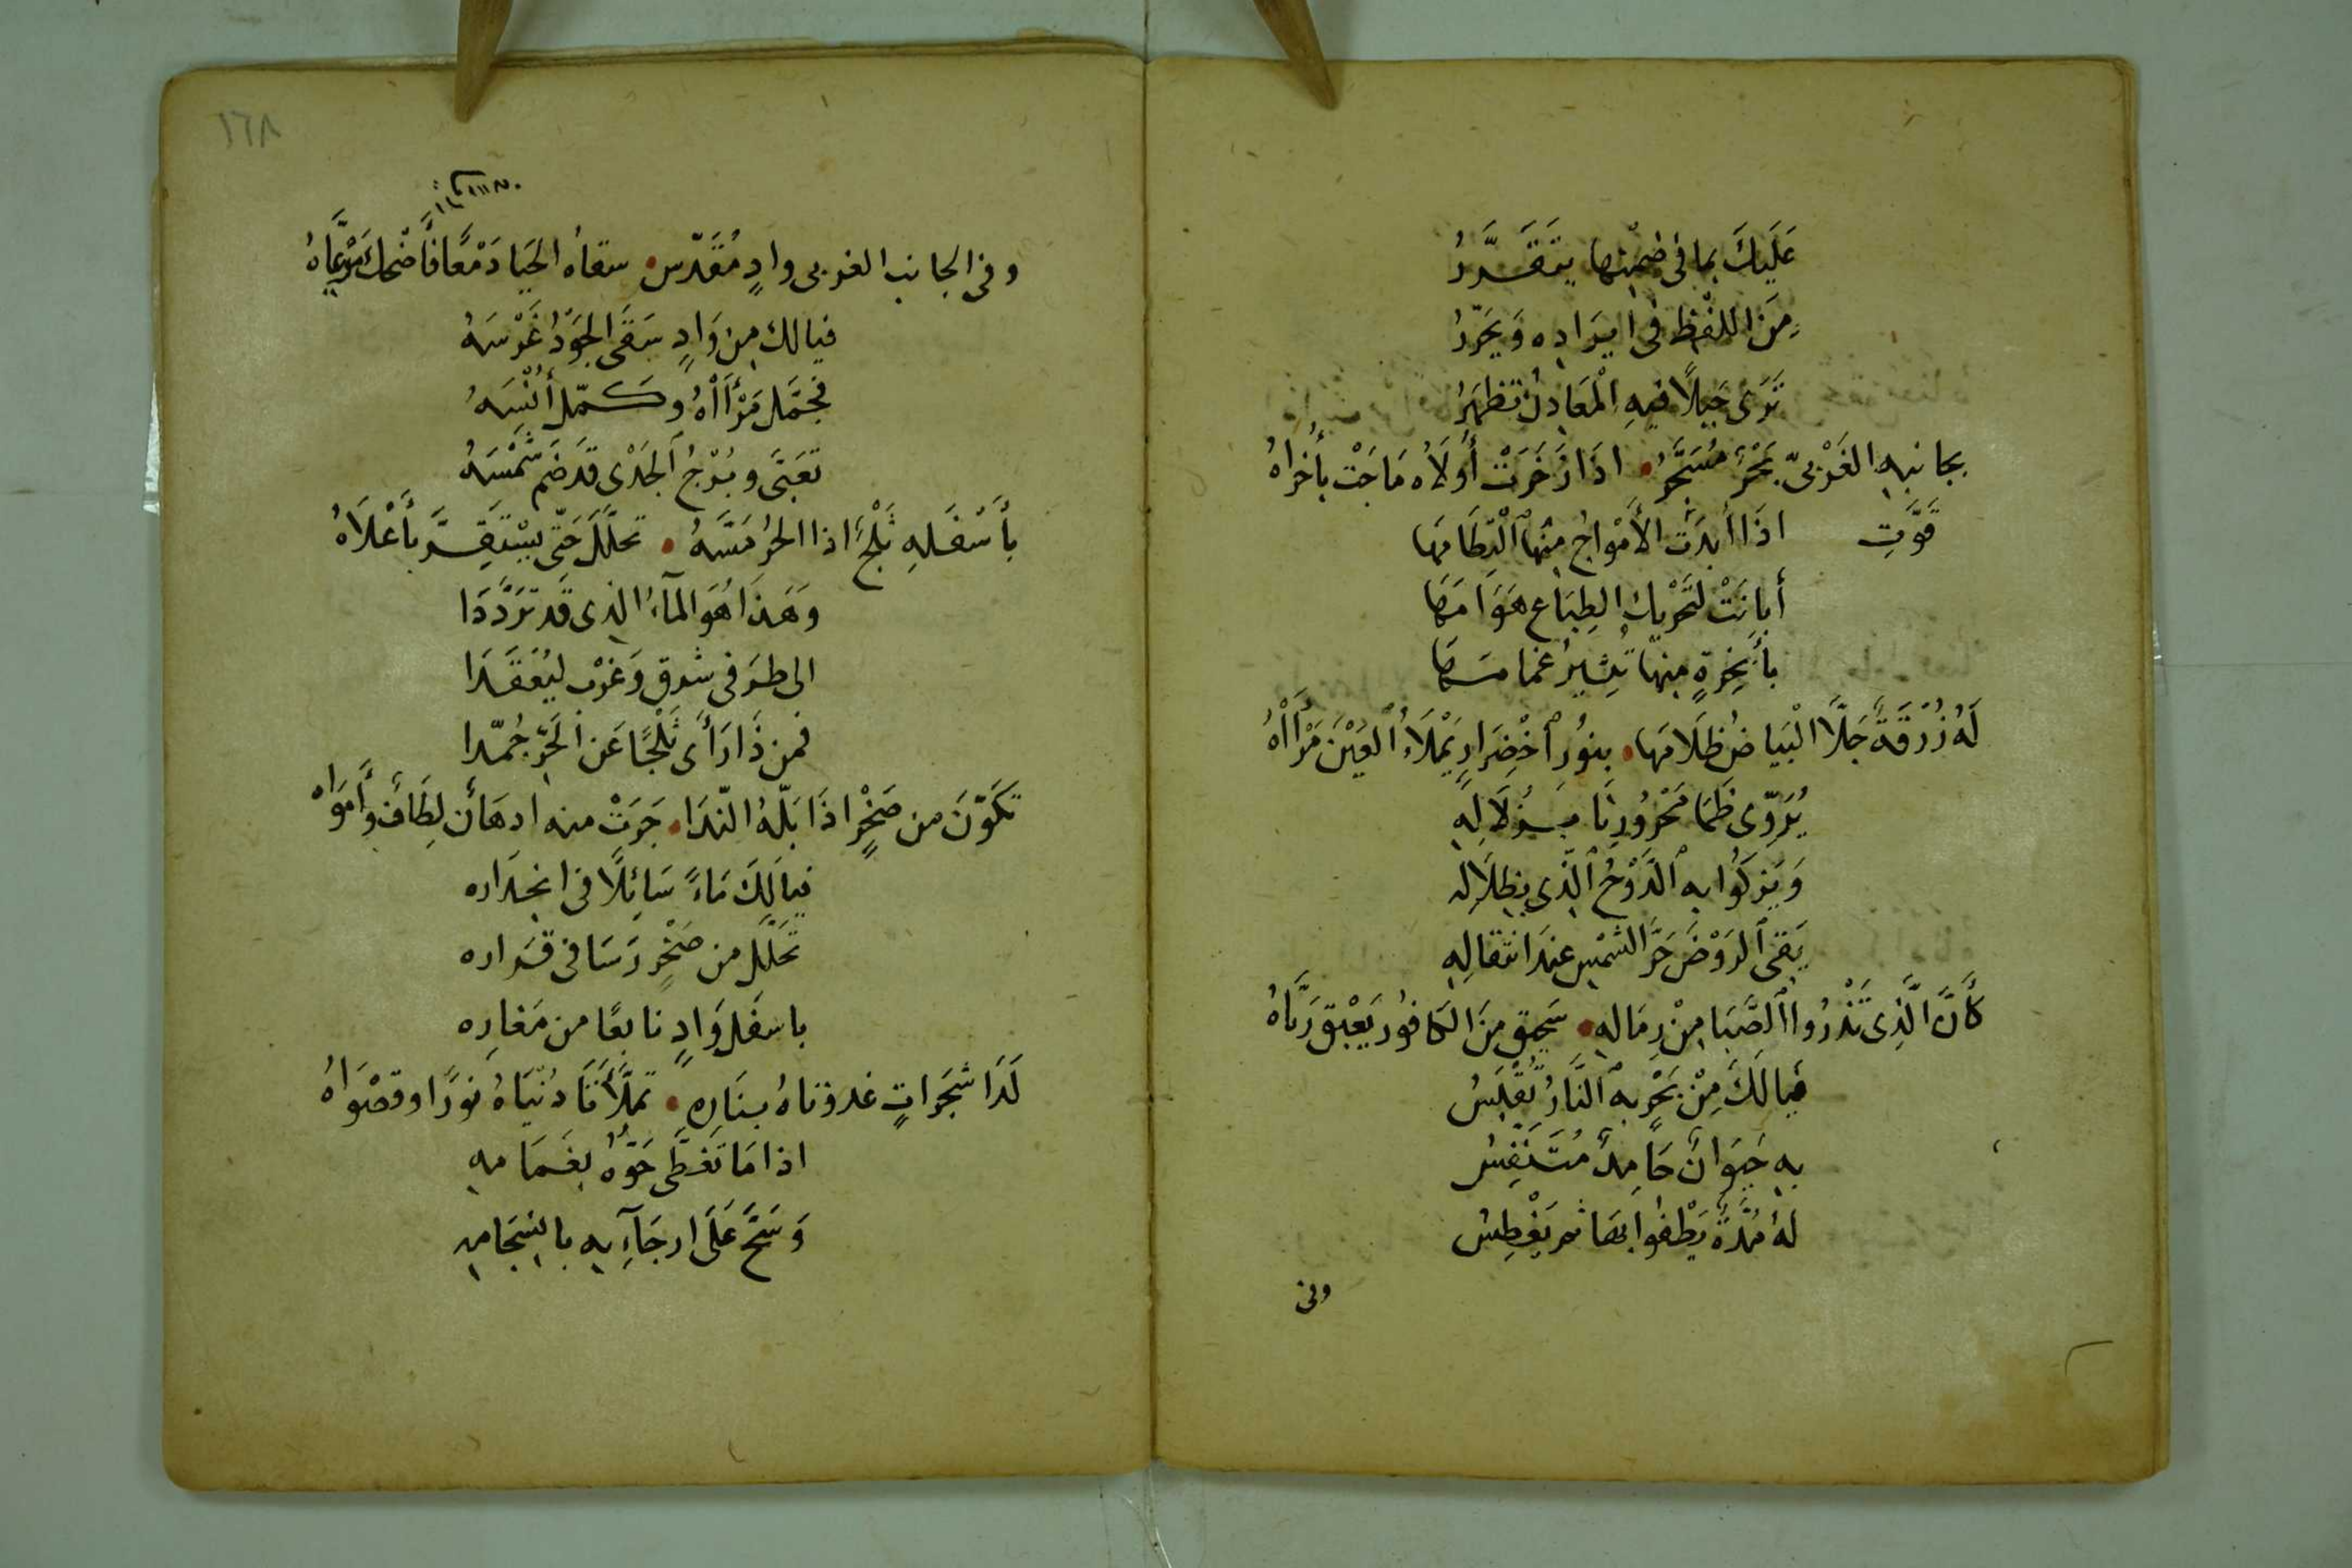 عَلَيكَ بما فى ضِمْنِها يتَقَدَّرُ
مِنَ اللفْظِ فى ايرَادِه وَيحَرّرُ
تَرَى جَبَلًا فيهِ الْمَعَادِنُ تظهَرُ
بجانبهِ الغَرْبىّ بَحْرٌ مُسَجَّرُ • اذَا زَخَرَتْ أُولَاه مَاجَتْ بأُخرَاهُ
قوّتِ اذَا أبدَت الأَمْوَاجُ مِنْهَا الْتِطَامَهَا
أبانَتْ لتَحْريكِ الطِبَاعِ هَوَامَهَا
بأبْخِرةٍ منهَا تُثِيرُ غمامَهَا
لَهُ زُرْقَةٌ جَلَّا الْبيَاضُ ظلَامَهَا • بنوُر اخْضِرَارٍ يَمْلَاءُ الْعَيْنَ مَرْأَاهُ
يُرَوّى ظمَا مَحْرُورِنَا بزُلَالِهِ
وَيَزكُوا به الدَّوْحُ الّذى بِظِلَالِه
يَقى الرَوْضَ حَرَّ الشمْسِ عندَ انتقالِهِ
كأَنَّ الَّذِى تَذْرُوا الصَّبَا مِنْ رِمَالهِ • سَحِيق مِنَ الكافوُر يَعْبَق رَيَّاهُ
فيَا لَكَ مِنْ بَحْرٍ بهِ النَّارُ تُقْبَسُ
بهِ حَيَوَانٌ جَامِدٌ مُتَنَفِسُ
لهُ مُدَّةٌ يَطْفوا بهَا ثم يَغْطِسُ
وفى
١٦٨
وفى الجانب الغربى وادٍ مُقَدَّس • سقاهُ الحَيَا دَمْعًا فأَضْحك مَرْعَاهُ
فيا لك من وَادٍ سَقَى الجَوْدُ غَرْسَهُ
فجَمَّل مَرْأَاهُ وكمّل أُنْسَهُ
وبُرْجُ الجَدْى قَد ضَم شَمْسَهُ
بأَسْفَلهِ ثَلْجٌ اذا الحرُ مَسَّهُ • تحلّلَ حَتّى يسْتَقِرَّ بأَعْلَاهُ
وَهَذَا هُوَ المآءُ الذى قَد تردَّدَا
الى طرَفى شرق وَغرْب ليُعْقَدَا
فمن ذَا رَأَى ثَلْجًا عَن الحَرّ جُمّدا
تكَوّنَ من صَخْرٍ اذَا بَلّهُ النّدَا • جَرَتْ منه ادهَأن لِطَأف وأَموَاه
فيَالَكَ مَاءً سَائلًا فى انحدَاره
تحَلّل من صَخْرٍ رَسَا فى قَرَاره
باسفَل وَادٍ نابعًا من مَغارِه
لَدَا شجَراتٍ غدوناهُ بنَارهِ • تملّأنَا دُنيَاهُ نوَرًا وقصْوَاهُ
اذا مَا تَغَطَّى جَوُّهُ بغَمَامهِ
وَسَحَّ عَلَى ارجَآءِيه بانسِجَامِه